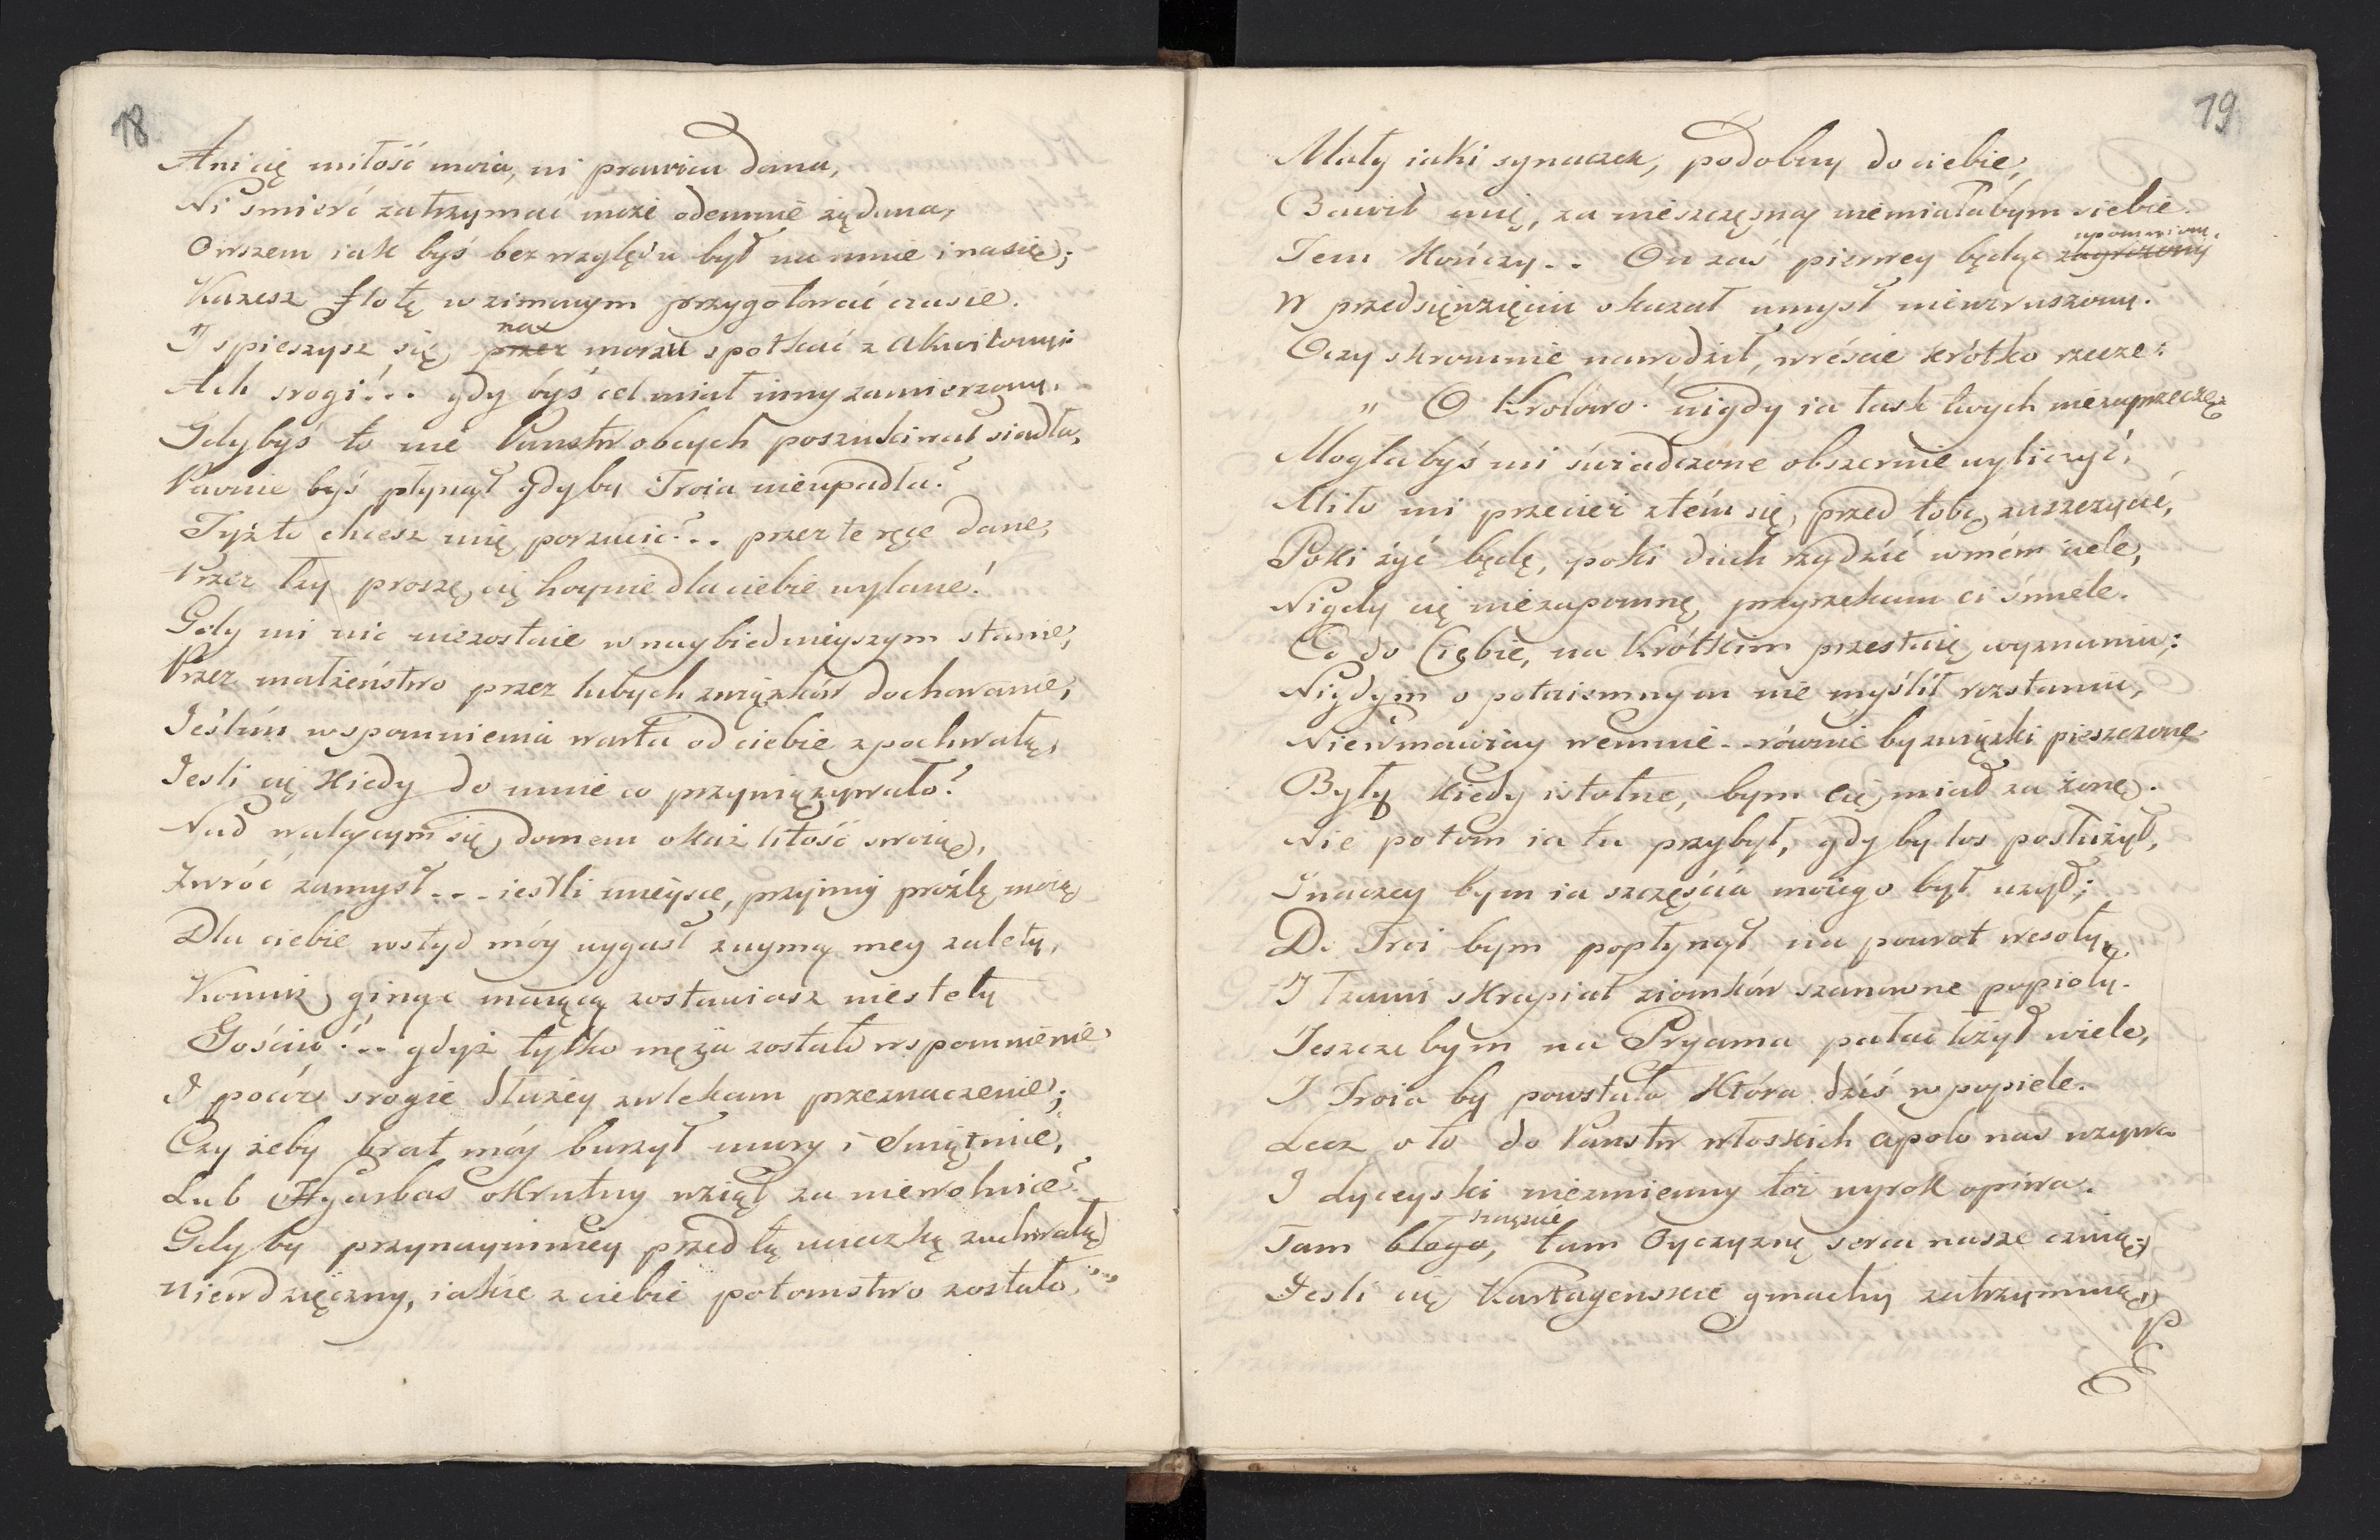 18
Ani cię miłość moia, ni prawica dana,
Ni smierć zatrzymać może odemnie żądana,
Owszem iak byś bez względu był na mnie i na się;
Każesz flotę w zimowym przygotować czasie.
I spieszysz się na przez morzu spotkać z Akwilony;
Ach srogi!... gdy byś cel miał inny zamierzony.
Gdybyś to nie Panstw obcych poszukiwał siadła,
Pewnie byś płynął gdyby Troia nieupadła?
Tyż to chcesz mię porzucić?.. przez te ręce dane,
Przez łzy proszę cię hoynie dla ciebie wylane!
Gdy mi nic niezostaie w naybiednieyszym stanie,
Przez małżeństwo przez lubych związków dochowanie,
Ieślim wspomnienia warta od ciebie z pochwałą,
Iesli cię kiedy do mnie co przywiązywało?
Nad walącym się domem okaż litość swoię,
Zwróć zamysł... iestli mieysce, przyimiy proźbę moię
Dla ciebie wstyd móy wygasł z uymą mey zalety,
Komuż ginąc maiącą zostawiasz niestety
Gościu!.. gdyż tylko męża zostało wspomnienie
I pocóż srogie dłużéy zwlekam przeznaczenie;
Czy żeby brat móy burzył mury i swiątnice,
Lub Hyarbas okrutny wziął za niewolnicę?
Gdyby przynaymniey przed tą ucieczką zuchwałą
Niewdzięczny, iakie z ciebie potomstwo zostało,"
19
Mały iaki synaczek, podobny do ciebie,
Bawił mię, za nieszczęsną niemiałabym siebie.
Tem kończy.. On zaś pierwey będąc zagrożony upomniony.
W przedsięwzięciu okazał umysł niewzruszony.
Oczy skromnie nawodził, wréście krótko rzecze:
" O Krolowo! nigdy ia łask twych niezaprzeczę
Mogłabyś mi świadczone obszernie wyliczyć,
Miło mi przecież z tém się przed tobą zaszczycić,
Poki żyć będę, poki duch rządzić w mém ciele,
Nigdy cię niezapomnę, przyrzekam ci śmiele.
Co do Ciebie, na krótkim przestaię wyznaniu;
Nigdym o potaiemnym nie myślił rozstaniu,
Niewmawiay wemnie.. równie by związki pieszczone
Były kiedy istotne, bym cię miał za żonę.
Nie potom ia tu przybył, gdy by los posłużył,
Inaczey bym ia szczęścia moiego był użył;
Do Troi bym popłynął na powrot wesoły,
I łzami skrapiał ziomków szanowne popioły.
Ieszcze bym na Pryama pałac łożył wiele,
I Troia by powstała która dziś w popiele.
Lecz oto do Panstw włoskich Apolo nas wzywa
I Lyceyski niezmienny toż wyrok opiwa.
Tam błogo, szczęście tam Oyczyznę serca nasze czuią;
Iesli cię Kartagenskie gmachy zatrzymuią,